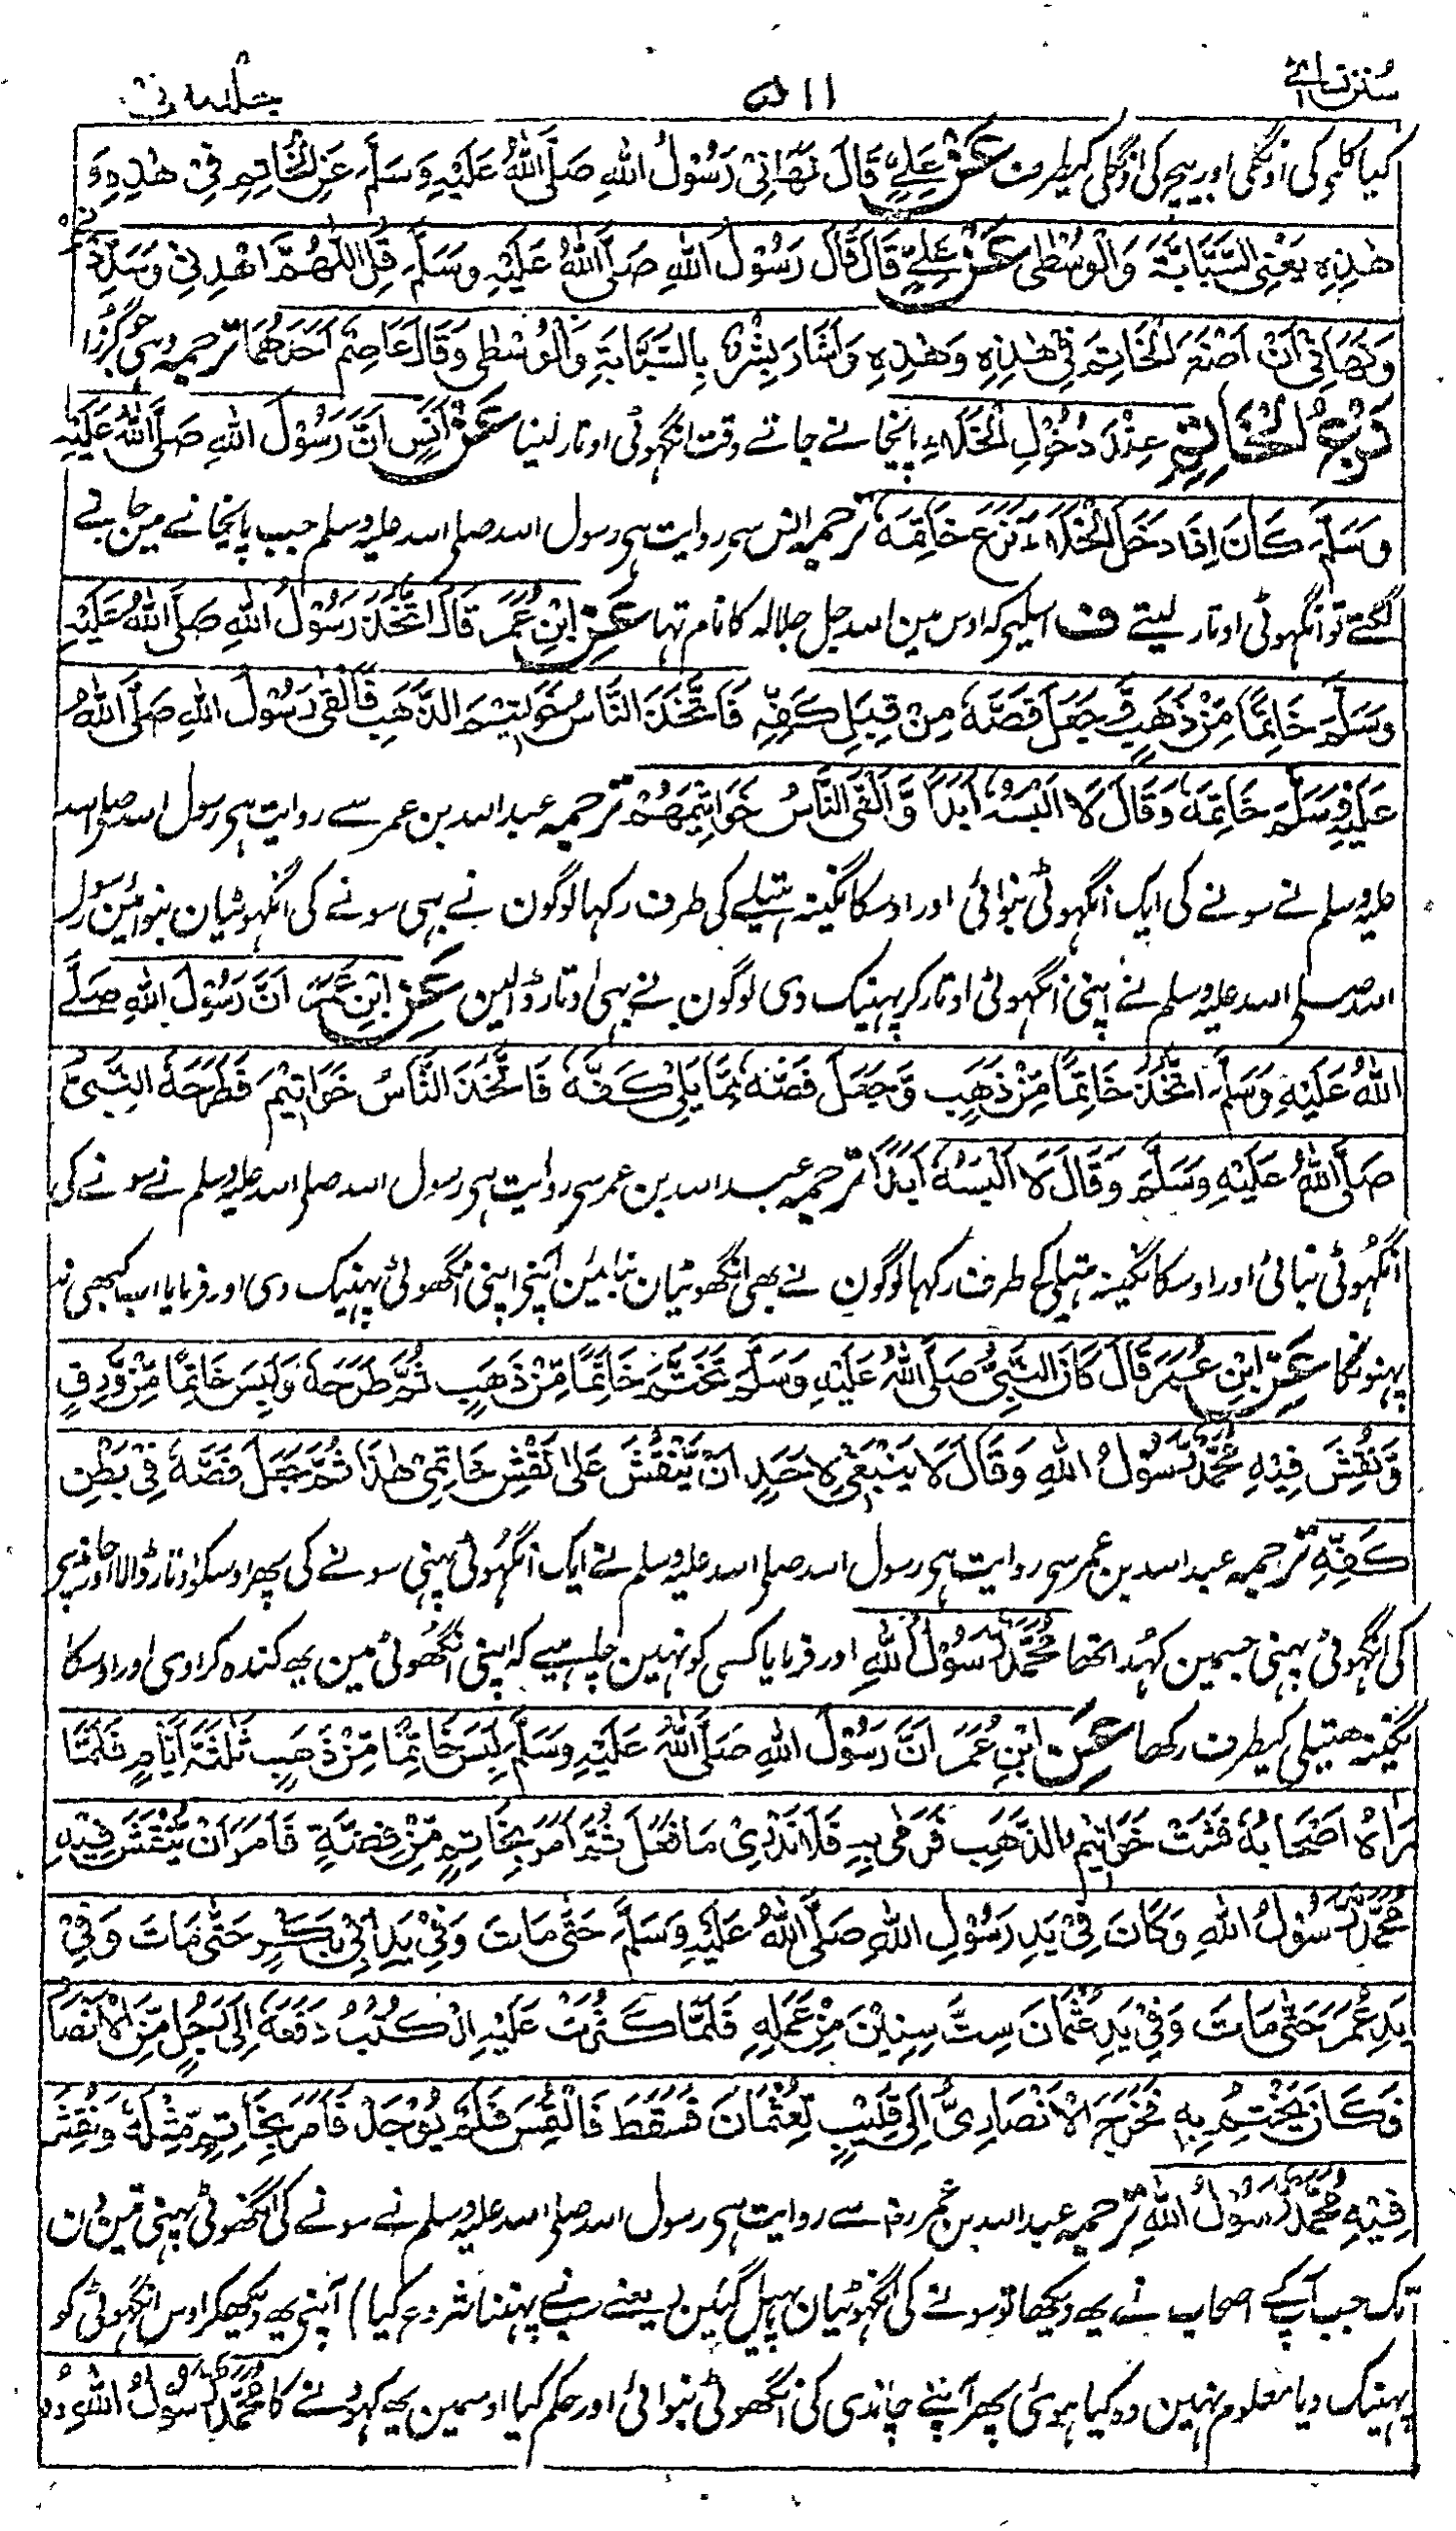 سُنن نسائے ۵۱۱ جلد ثانی
کیا کلمے کی اونگلی اور بیچ کی اونگلی کیطرف عَنْ عَلِيٍّ قَالَ نَهَانِيْ رَسُوْلُ اللهِ صَلَّى اللهُ عَلَيْهِ وَسَلَّمَ عَنِ الْخَاتِمِ فِيْ هٰذِهِ وَ
هٰذِهِ يَعْنِي السَّبَّابَةَ وَالْوُسْطٰى عَنْ عَلِيٍّ قَالَ قَالَ رَسُوْلُ اللهِ صَلَّى اللهُ عَلَيْهِ وَسَلَّمَ قُلِ اللّٰهُمَّ اهْدِنِيْ وَسَدِّدْنِيْ
وَنَهَانِيْ اَنْ اَضَعَ الْخَاتِمَ فِيْ هٰذِهِ وَهٰذِهِ وَاَشَارَ بِشْرٌ بِالسَّبَّابَةِ وَالْوُسْطٰى وَقَالَ عَاصِمٌ اَحَدَهُمَا ترجمہ وہی جو گزرا
نَزْعُ الْخَاتِمِ عِنْدَ دُخُوْلِ الْخَلَاءِ پائخانے جاتے وقت انگہوٹی اوتار لینا عَنْ اَنَسٍ اَنَّ رَسُوْلَ اللهِ صَلَّى اللهُ عَلَيْهِ
وَسَلَّمَ كَانَ اِذَا دَخَلَ الْخَلَاءَ نَزَعَ خَاتِمَهُ ترجمہ انس سے روایت ہی رسول اللہ صلی اللہ علیہ وسلم جب پائخانے مین جانے
لگتے تو انگہوٹی اوتار لیتے ف اسلیے کہ اوس مین اللہ جل جلالہ کا نام تہا عَنِ ابْنِ عُمَرَ قَالَ اتَّخَذَ رَسُوْلُ اللهِ صَلَّى اللهُ عَلَيْهِ
وَسَلَّمَ خَاتِمًا مِّنْ ذَهَبٍ وَّجَعَلَ فَصَّهُ مِنْ قِبَلِ كَفِّهِ فَاتَّخَذَ النَّاسُ خَوَاتِيْمَ الذَّهَبِ فَاَلْقٰى رَسُوْلُ اللهِ صَلَّى اللهُ
عَلَيْهِ وَسَلَّمَ خَاتِمَهُ وَقَالَ لَا اَلْبَسُهُ اَبَدًا وَّاَلْقَى النَّاسُ خَوَاتِيْمَهُمْ ترجمہ عبداللہ بن عمر سے روایت ہی رسول اللہ صلی اللہ
علیہ وسلم نے سونے کی ایک انگہوٹی بنوائی اور اوسکا نگینہ ہتیلے کی طرف رکہا لوگون نے بہی سونے کی انگہوٹیان بنوائین رسول
اللہ صلی اللہ علیہ وسلم نے اپنی انگہوٹی اوتار کر پہینک دی لوگون نے بہی اوتار ڈالین عَنِ ابْنِ عُمَرَ اَنَّ رَسُوْلَ اللهِ صَلَّى
اللهُ عَلَيْهِ وَسَلَّمَ اتَّخَذَ خَاتِمًا مِّنْ ذَهَبٍ وَّجَعَلَ فَصَّهُ مِمَّا يَلِيْ كَفَّهُ فَاتَّخَذَ النَّاسُ خَوَاتِيْمَ فَطَرَحَهُ النَّبِيُّ
صَلَّى اللهُ عَلَيْهِ وَسَلَّمَ وَقَالَ لَا اَلْبَسُهُ اَبَدًا ترجمہ عبداللہ بن عمر سے روایت ہی رسول اللہ صلی اللہ علیہ وسلم نے سونے کی
انگہوٹی بنائی اور اوسکا نگینہ ہتیلی کی طرف رکہا لوگون نے بھی انگھوٹیان بنائین آپنے اپنی انگھوٹی پہینک دی اور فرمایا اب کبھی نہ
پہنونگا عَنِ ابْنِ عُمَرَ قَالَ كَانَ النَّبِيُّ صَلَّى اللهُ عَلَيْهِ وَسَلَّمَ تَخَتَّمَ خَاتِمًا مِّنْ ذَهَبٍ ثُمَّ طَرَحَهُ وَلَبِسَ خَاتِمًا مِّنْ وَّرِقٍ
وَّنُقِشَ فِيْهِ مُحَمَّدٌ رَّسُوْلُ اللهِ وَقَالَ لَا يَنْبَغِيْ لِاَحَدٍ اَنْ يَّنْقُشَ عَلٰى نَقْشِ خَاتِمِيْ هٰذَا ثُمَّ جَعَلَ فَصَّهُ فِيْ بَطْنِ
كَفِّهِ ترجمہ عبداللہ بن عمر سے روایت ہی رسول اللہ صلی اللہ علیہ وسلم نے ایک انگہوٹی پہنی سونے کی پھر اوسکو اوتار ڈالا اور
کی انگہوٹی پہنی جسمین کہُدا تھا مُحَمَّدٌ رَّسُوْلُ اللهِ اور فرمایا کسی کو نہین چاہیے کہ اپنی انگھوٹی مین یہ کندہ کراوی اور اوسکا
نگینہ ہتیلی کیطرف رکھا عَنِ ابْنِ عُمَرَ اَنَّ رَسُوْلَ اللهِ صَلَّى اللهُ عَلَيْهِ وَسَلَّمَ لَبِسَ خَاتِمًا مِّنْ ذَهَبٍ ثَلٰثَةَ اَيَّامٍ فَلَمَّا
رَاٰهُ اَصْحَابُهُ فَشَتْ خَوَاتِيْمُ الذَّهَبِ فَرَمٰى بِهِ فَلَا نَدْرِيْ مَا فَعَلَ ثُمَّ اَمَرَ بِخَاتِمٍ مِّنْ فِضَّةٍ فَاَمَرَ اَنْ يُّنْقَشَ فِيْهِ
مُحَمَّدٌ رَّسُوْلُ اللهِ وَكَانَ فِيْ يَدِ رَسُوْلِ اللهِ صَلَّى اللهُ عَلَيْهِ وَسَلَّمَ حَتّٰى مَاتَ وَفِيْ يَدِ اَبِيْ بَكْرٍ حَتّٰى مَاتَ وَفِيْ
يَدِ عُمَرَ حَتّٰى مَاتَ وَفِيْ يَدِ عُثْمَانَ سِتَّ سِنِيْنَ مِنْ عَمَلِهِ فَلَمَّا كَثُرَتْ عَلَيْهِ الْكُتُبُ دَفَعَهُ اِلٰى رَجُلٍ مِّنَ الْاَنْصَارِ
فَكَانَ يَخْتِمُ بِهِ فَخَرَجَ الْاَنْصَارِيُّ اِلٰى قَلِيْبٍ لِّعُثْمَانَ فَسَقَطَ فَالْتُمِسَ فَلَمْ يُوْجَدْ فَاَمَرَ بِخَاتِمٍ مِّثْلَهُ وَنَقَشَ
فِيْهِ مُحَمَّدٌ رَّسُوْلُ اللهِ ترجمہ عبداللہ بن عمر رضہ سے روایت ہی رسول اللہ صلی اللہ علیہ وسلم نے سونے کی انگھوٹی پہنی تین دن
تک جب آپکے اصحاب نے یہ دیکھا تو سونے کی انگہوٹیان پہیل گئین (یعنے سب نے پہننا شروع کیا) آپنی یہ دیکھکر اوس انگہوٹی کو
پہینک دیا معلوم نہین وہ کیا ہوئی پھر آپنے چاندی کی انگھوٹی بنوائی اور حکم کیا اوسمین یہ کہودنے کا مُحَمَّدٌ رَّسُوْلُ اللهِ وہ